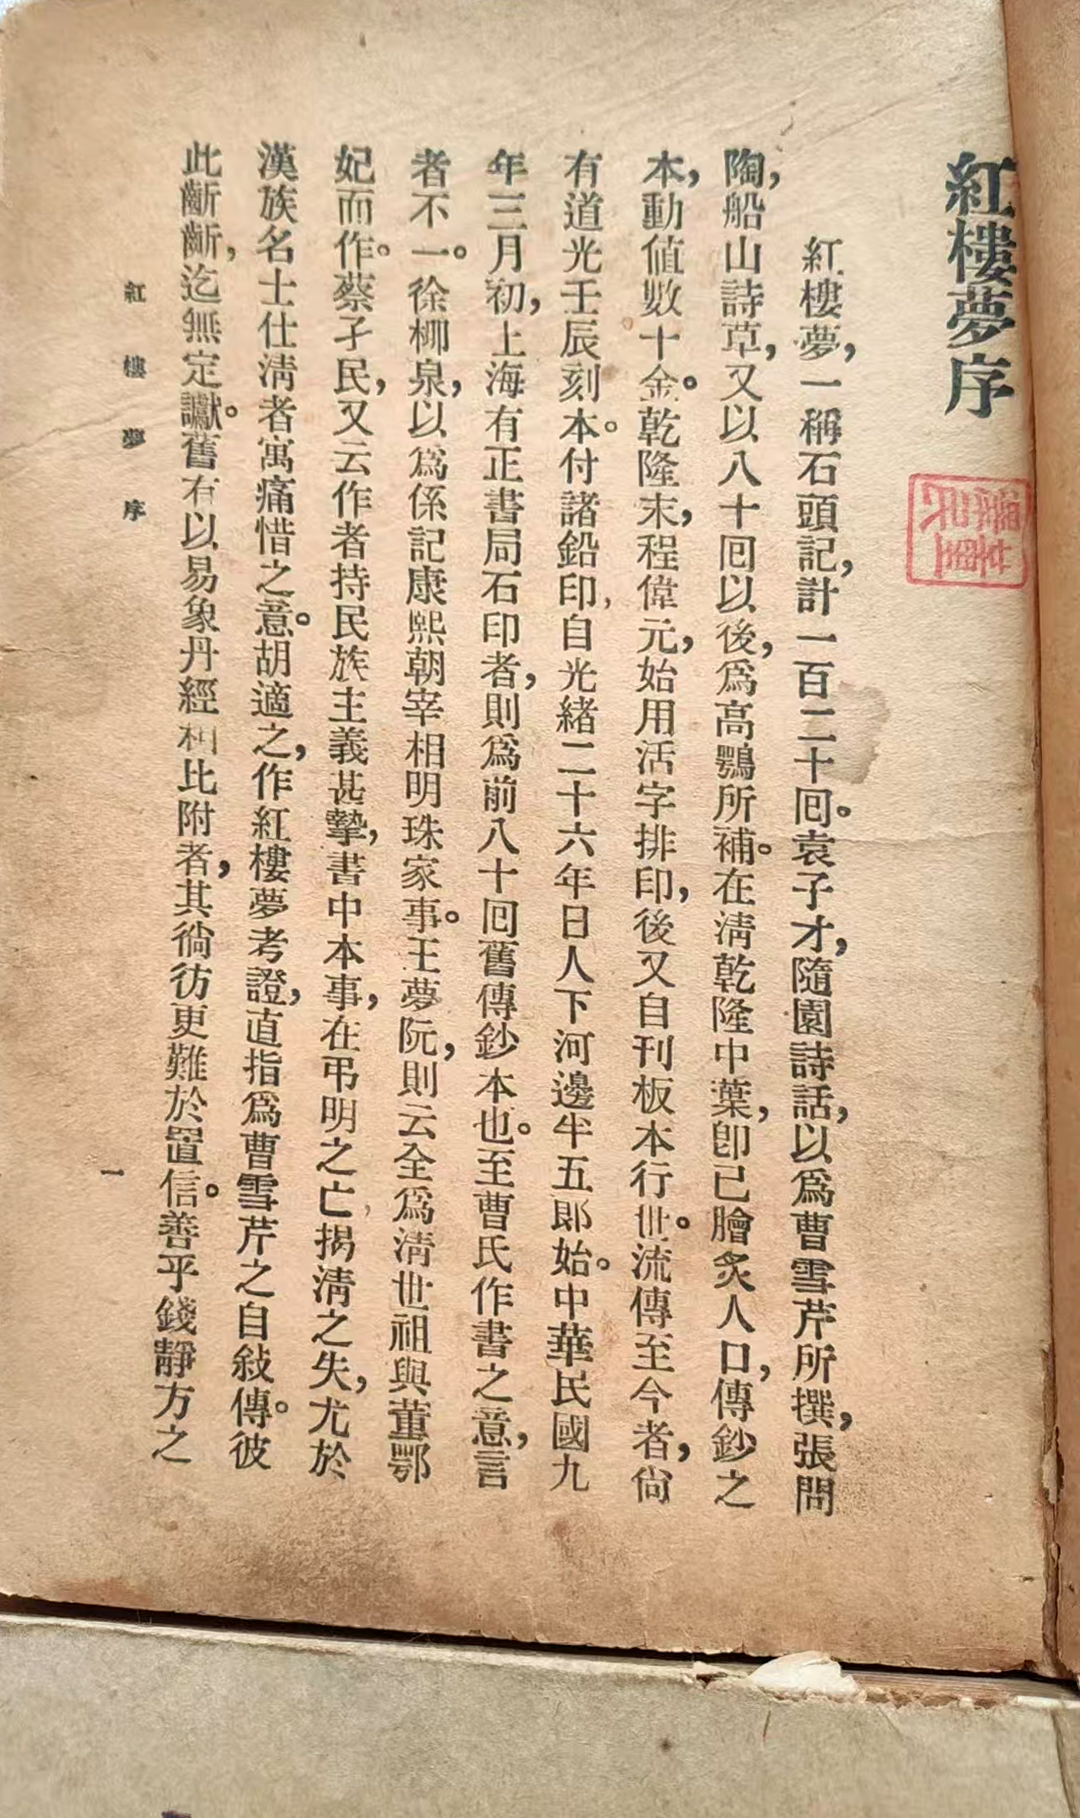 紅樓夢序
紅樓夢，一稱石頭記，計一百二十囘。袁子才，隨園詩話，以爲曹雪芹所撰，張問
陶，船山詩草，又以八十囘以後，爲高鶚所補。在淸乾隆中葉，卽已膾炙人口，傳鈔之
本，動値數十金。乾隆末，程偉元，始用活字排印，後又自刊板本行世。流傳至今者，尙
有道光壬辰刻本。付諸鉛印，自光緒二十六年日人下河邊半五郞始。中華民國九
年三月初，上海有正書局石印者，則爲前八十囘舊傳鈔本也。至曹氏作書之意，言
者不一。徐柳泉，以爲係記康熙朝宰相明珠家事。王夢阮，則云全爲淸世祖與董鄂
妃而作。蔡孑民，又云作者持民族主義甚摯，書中本事，在弔明之亡，揭淸之失，尤於
漢族名士仕淸者寓痛惜之意。胡適之，作紅樓夢考證，直指爲曹雪芹之自敍傳。彼
此齗齗，迄無定讞。舊有以易象丹經相比附者，其徜彷更難於置信。善乎錢靜方之
紅樓夢序
一